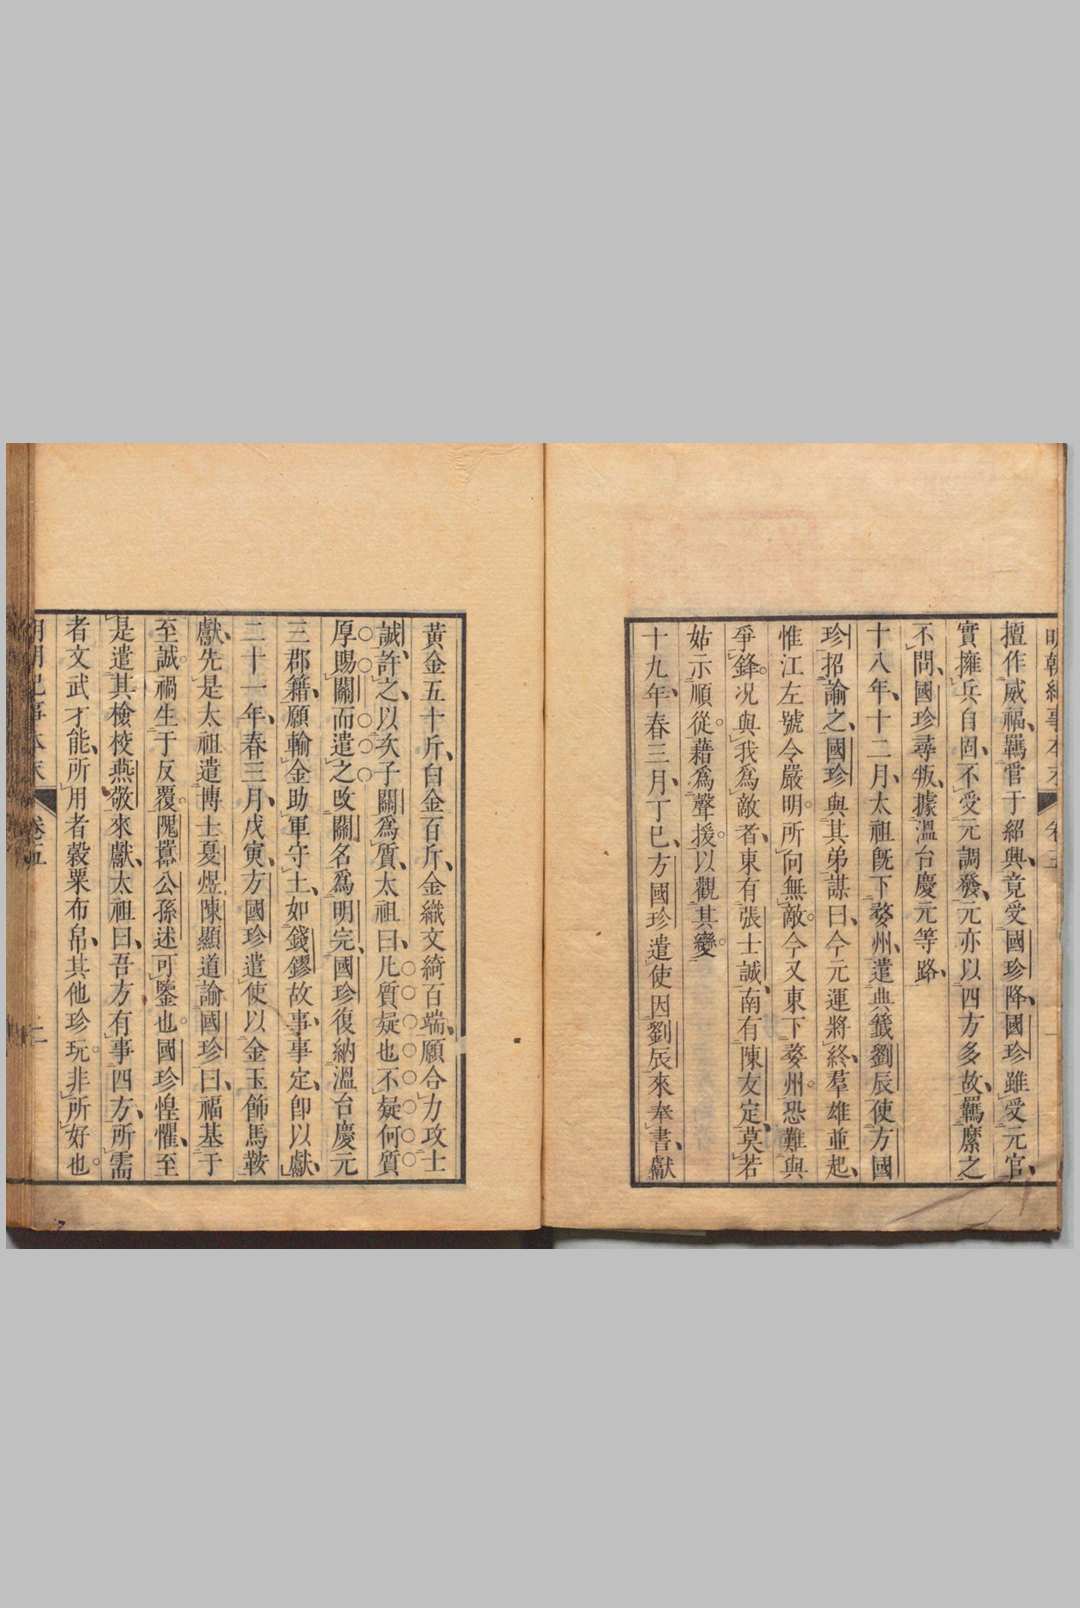 擅作威福、羈管于紹興、竟受國珍降、國珍雖受元官、
實擁兵自固、不受元調發、元亦以四方多故、羈縻之
不問、國珍尋叛、據溫台慶元等路、
十八年、十二月、太祖既下婺州、遣典籤劉辰使方國
珍招諭之、國珍與其弟謀曰、今元運將終、羣雄並起、
惟江左號令嚴明。所向無敵。今又東下婺州。恐難與
爭鋒。況與我爲敵者、東有張士誠、南有陳友定、莫若
姑示順從。藉爲聲援。以觀其變。
十九年、春三月、丁巳、方國珍遣使因劉辰來奉書、獻
黃金五十斤、白金百斤、金織文綺百端、願合力攻士
誠、許之、以次子關爲質、太祖曰、凡質疑也不疑何質
厚賜關而遣之改關名爲明完、國珍復納溫台慶元
三郡籍、願輸金助軍守土、如錢鏐故事、事定、卽以獻、
二十一年、春三月、戊寅、方國珍遣使以金玉飾馬鞍
獻、先是太祖遣博士夏煜陳顯道諭國珍曰、福基于
至誠。禍生于反覆。隗囂公孫述可鑒也。國珍惶懼、至
是遣其檢校燕敬來獻、太祖曰、吾方有事四方、所需
者文武才能、所用者穀粟布帛、其他珍玩。非所好也。